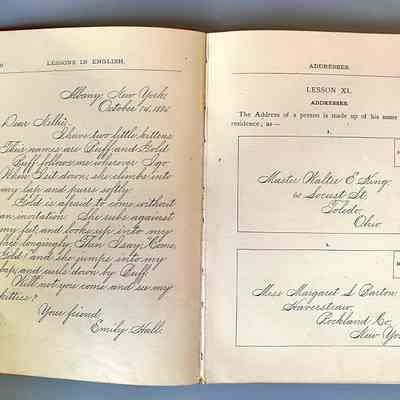 LESSONS IN ENGLISH.
Albany, New York,
October 14, 1886
Dear Nellie:
I have two little kittens
This names are Puff and Gold
Puff follows me wherever I go
When I sit down, she climbs into
my lap and purrs softly.
Gold is afraid to come without
an invitation. She rubs against
my feet and looks up into my
face longingly. Then I say, "Come,
Gold" and she jumps into my
lap and curls down by Puff.
Will not you come and see my
kitties?
Your friend,
Emily Hall.
ADDRESSES.
LESSON XI.
ADDRESSES.
The Address of a person is made up of his name
residence; as—
1.
Master Walter E. King,
Locust St.
Toledo,
Ohio.
2.
Miss Margaret S. Barton
Haverstraw,
Rockland Co.
New Yo